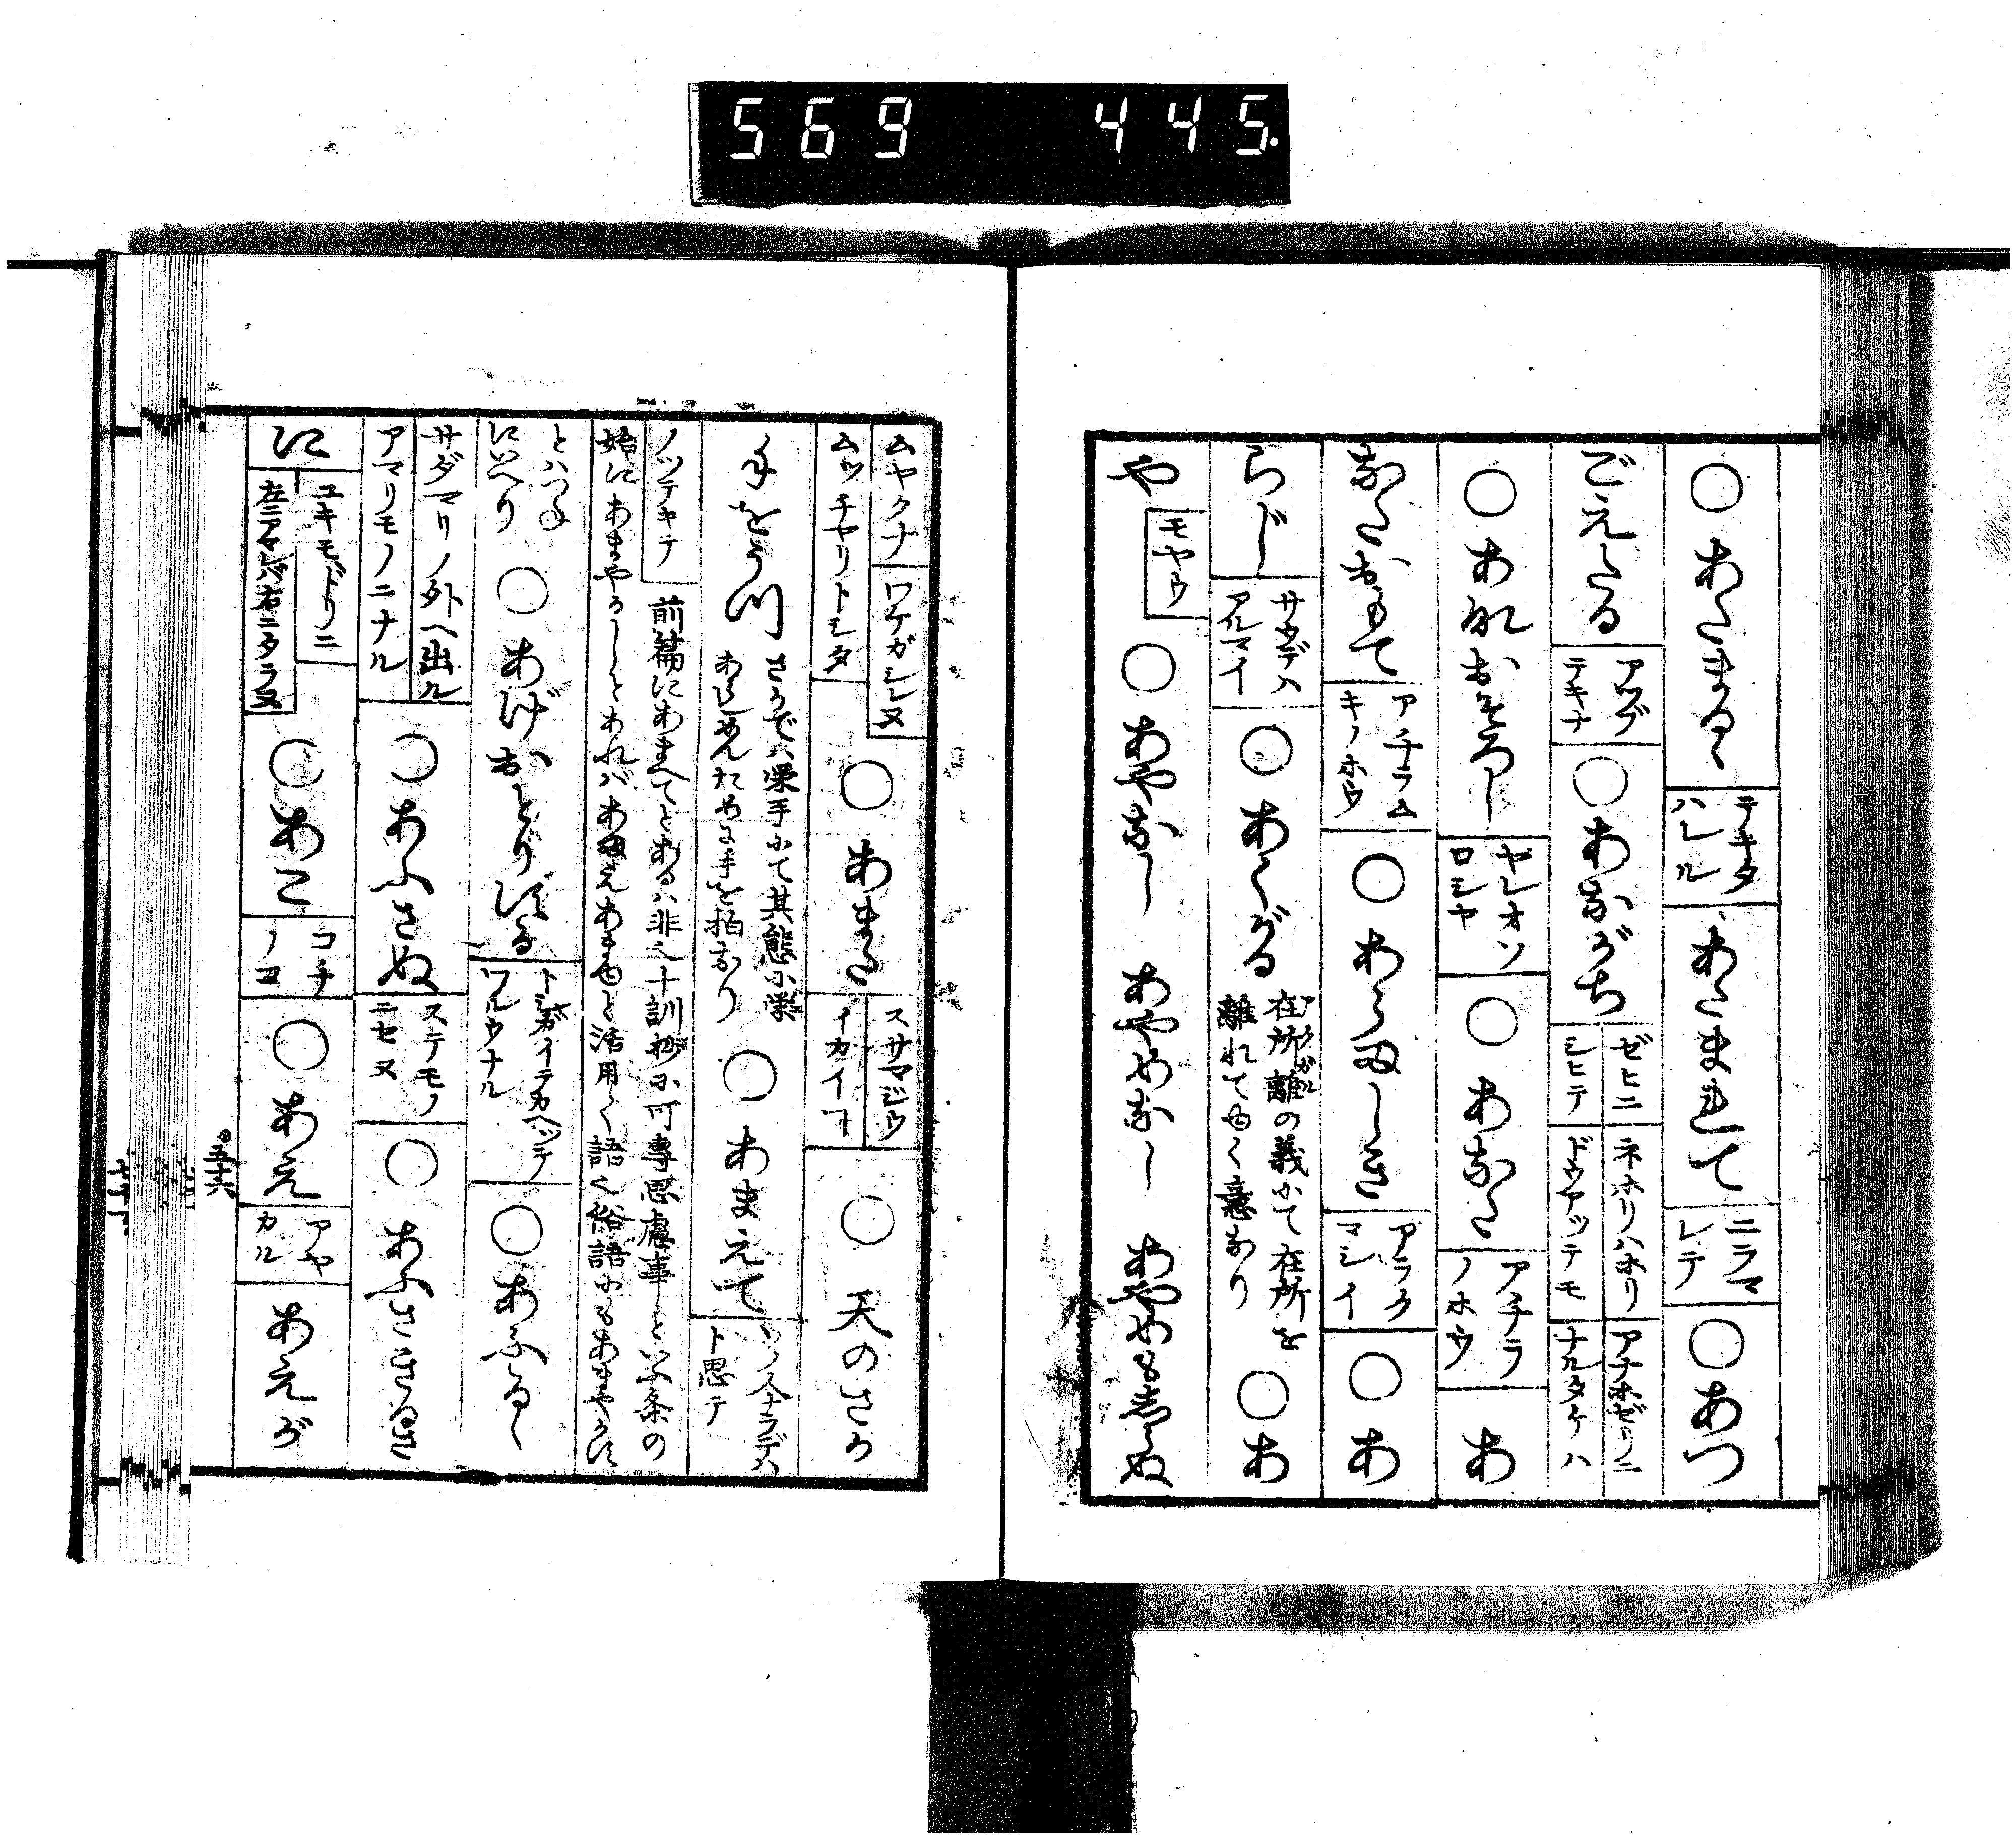 569 445.
○あたまるゝ
テキタ
ハレル
あたまれて
ニラマ
レテ
○あつ
ごえたる
アツブ
テキナ
○あながち
ゼヒニ
シヒテ
ネホリハホリ
ドウアツテモ
アナホゼリニ
ナルタケハ
○あれおそろし
ヤレオソ
ロシヤ
○あなた
アチラ
ノホウ
あ
なたおもて
アチラム
キノホウ
○あらましき
アラク
マシイ
○あ
らじ
サウデハ
アルマイ
○あくがる
在所離の義にて在所を
離れてゆく意なり
○あ
や
モヤウ
○あやなし あやめなし あやめも志らぬ
ムヤクナ
ムツチヤリトシタ
ワケガシレヌ
○あまた
スサマジウ
イカイコ
○天のさか
手をうつ
さかでハ栄手にて其態に
手を拍なり
○あまえて
ト思テ
ノツテキテ
前篇にあまへてとあるハ非也十訓抄に可專思慮事といふ条の
始にあまやかしとあれバあまえあまゆと活用く語也俗語にもあまやかす
とハつね
にいへり
○あげおとりする
トシガイテカヘツテ
ワルウナル
○あふるゝ
サダマリノ外ヘ出ル
アマリモノニナル
○あふさぬ
ステモノ
ニセヌ
○あふさきるさ
に
ユキモドリニ
左ニアマレバ右ニタラヌ
○あこ
コチ
ノコ
○あえ
アヤ
カル
あえが
五十六